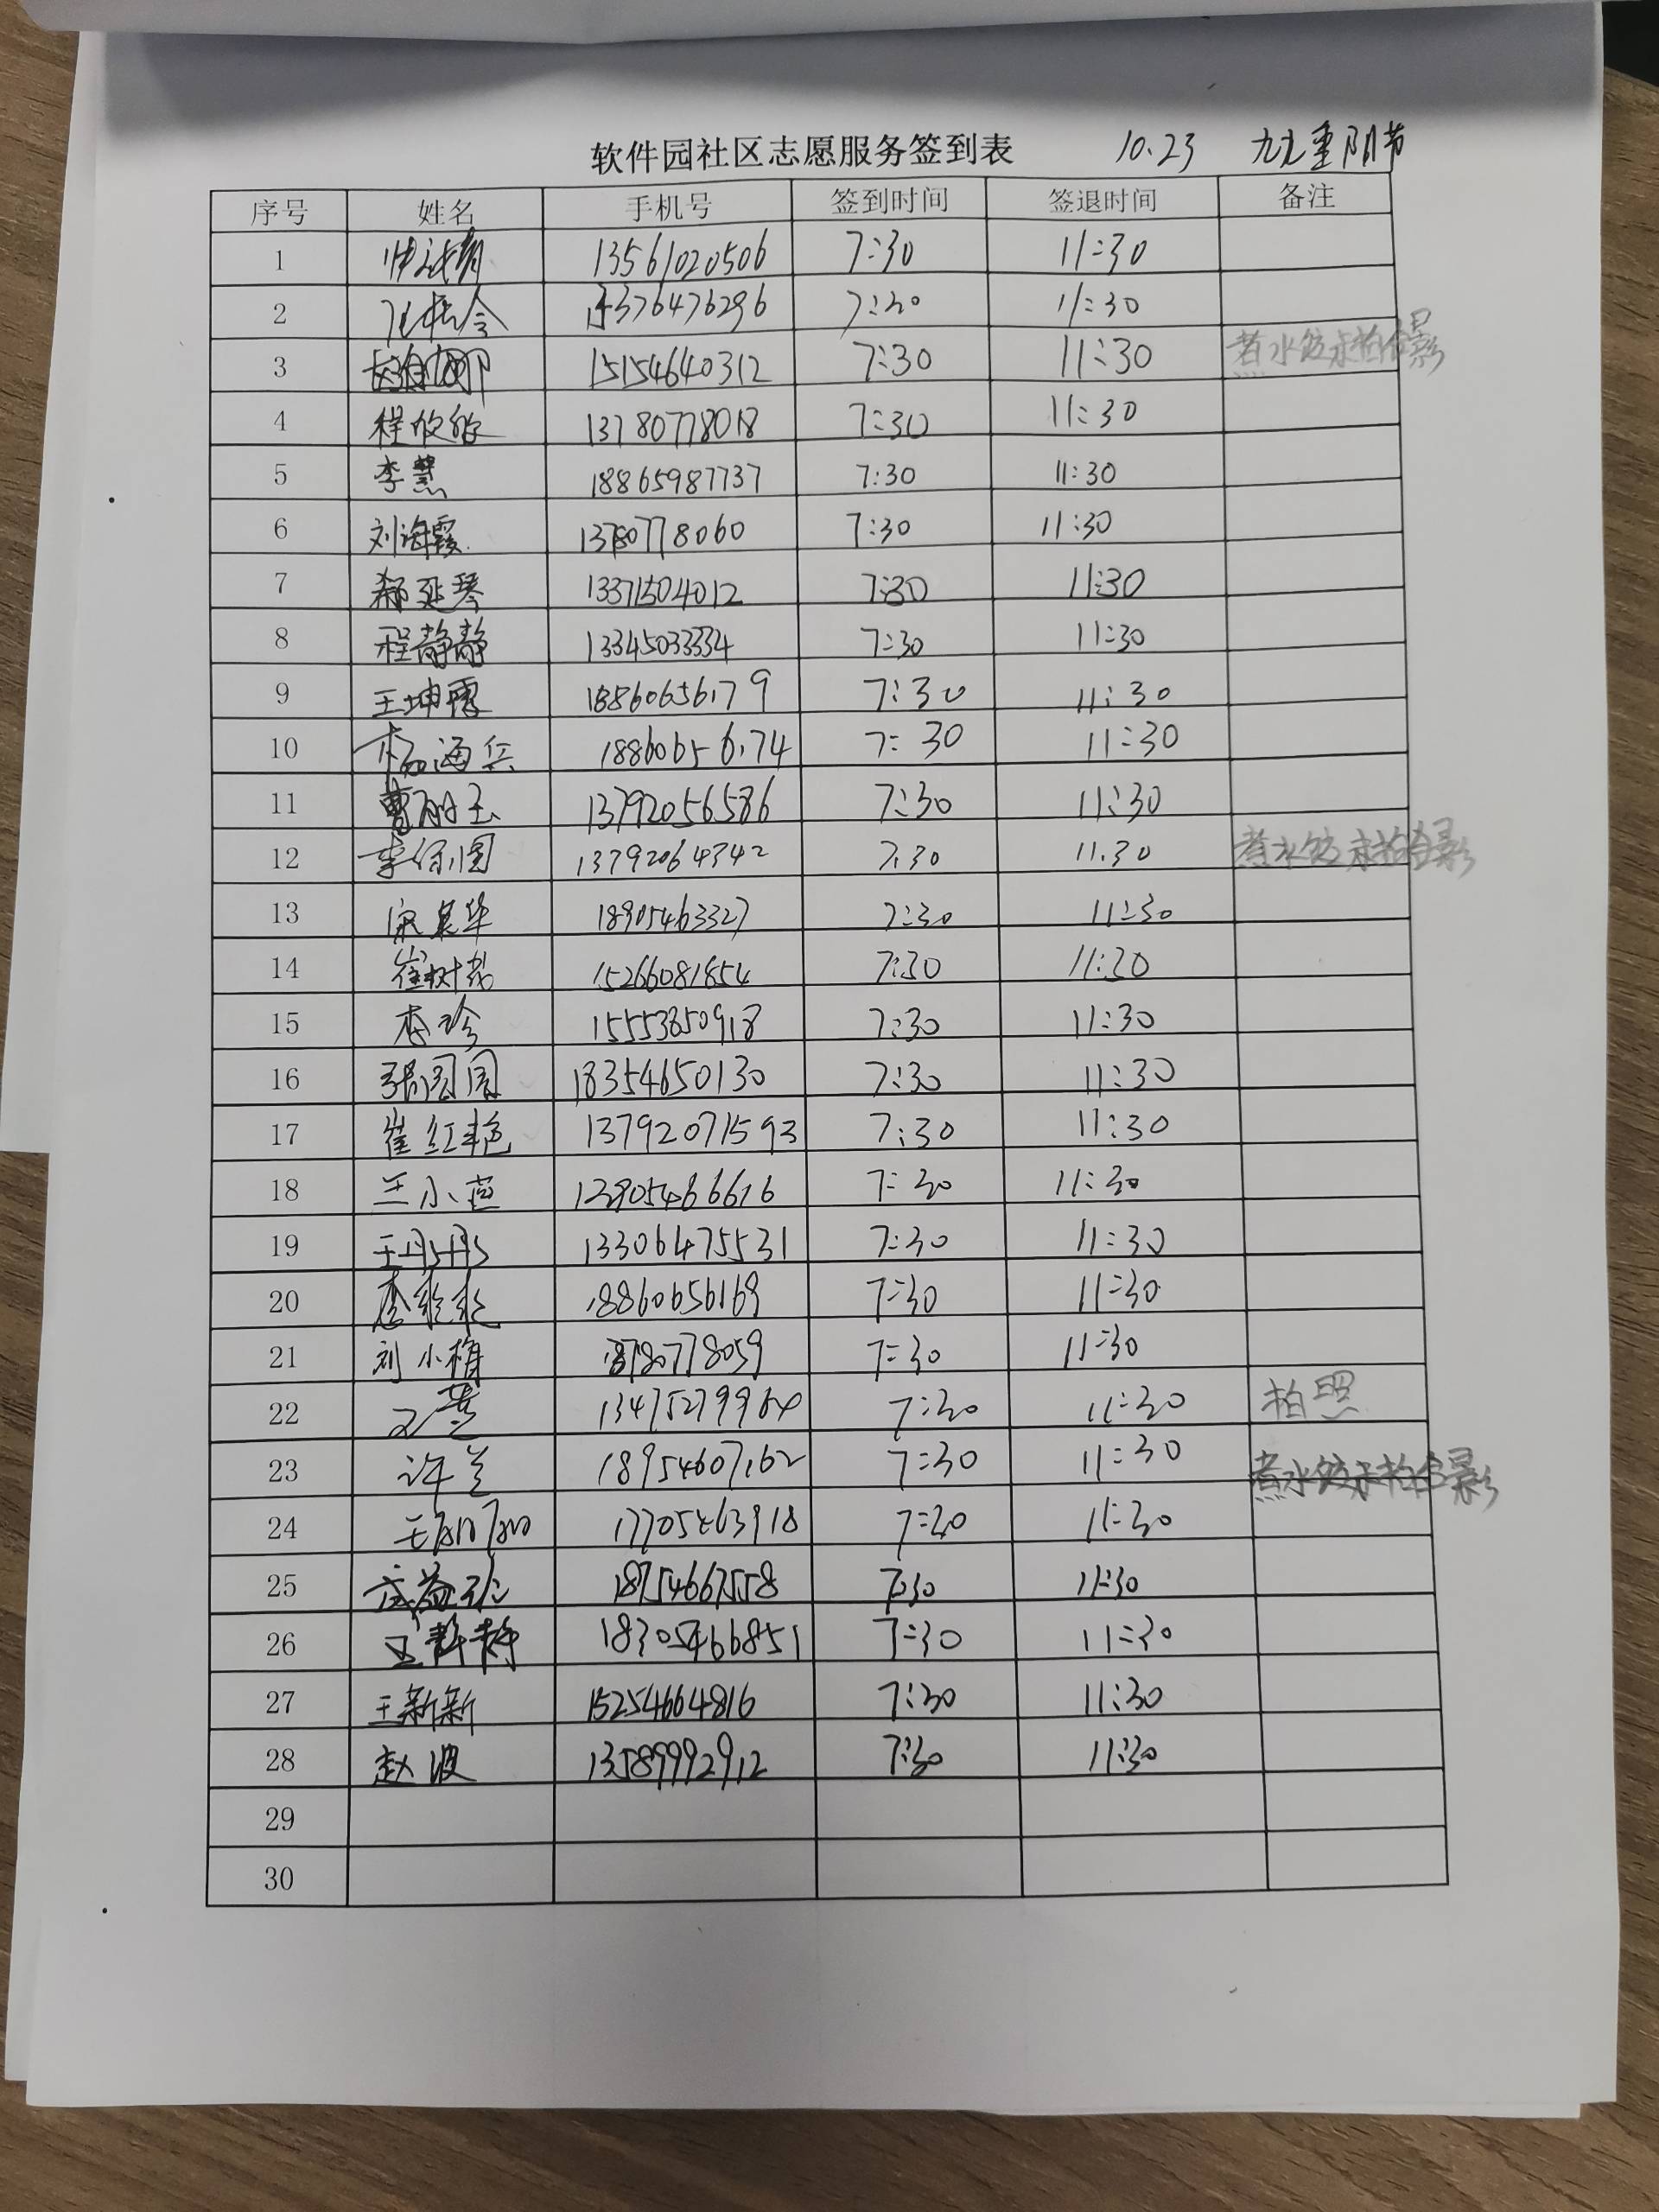 软件园社区志愿服务签到表 10.23 九九重阳节
序号 姓名 手机号 签到时间 签退时间 备注
1 13561020506 7:30 11:30
2 13376476296 7:30 11:30
3 15154640312 7:30 11:30 煮水饺未拍合影
4 程欣欣 13780778018 7:30 11:30
5 李慧 18865987737 7:30 11:30
6 刘海霞 13780778060 7:30 11:30
7 郝延琴 13371504012 7:30 11:30
8 程静静 13345033334 7:30 11:30
9 王坤霞 18860656179 7:30 11:30
10 杨海兵 18860656174 7:30 11:30
11 曹丽玉 13792056586 7:30 11:30
12 李保国 13792064342 7:30 11:30 煮水饺未拍合影
13 18905463327 7:30 11:30
14 崔树芬 15266081654 7:30 11:30
15 李珍 15553850918 7:30 11:30
16 张园园 18354650130 7:30 11:30
17 崔红艳 13792071593 7:30 11:30
18 王小燕 13905466616 7:30 11:30
19 王丹丹 13306475531 7:30 11:30
20 18860656169 7:30 11:30
21 刘小梅 13780778059 7:30 11:30
22 13475279964 7:30 11:30 拍照
23 许兰 18954607162 7:30 11:30 煮水饺未拍合影
24 王丽丽 17705463918 7:30 11:30
25 18754667558 7:30 11:30
26 王静静 18305466851 7:30 11:30
27 王新新 15254664816 7:30 11:30
28 赵波 13589992912 7:30 11:30
29
30